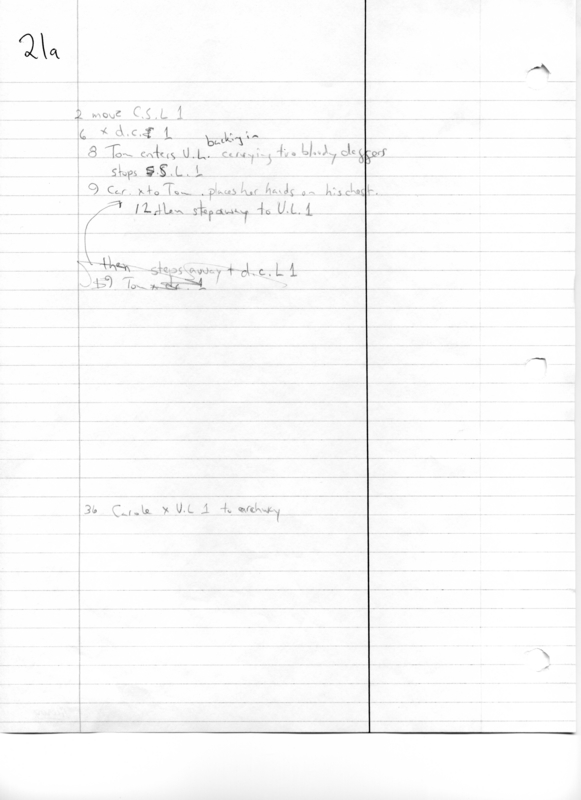 21a
2 move C.S.L 1
6 x d.c. 1
backing in
8 Tom enters U.L. carrying two bloody daggers
stops S.L. 1
9 Car. x to Tom. places her hands on his chest.
12, then steps away to U.L 1
then steps away + d.c. L 1
19 Tom x 1
36 Carole x U.L 1 to archway